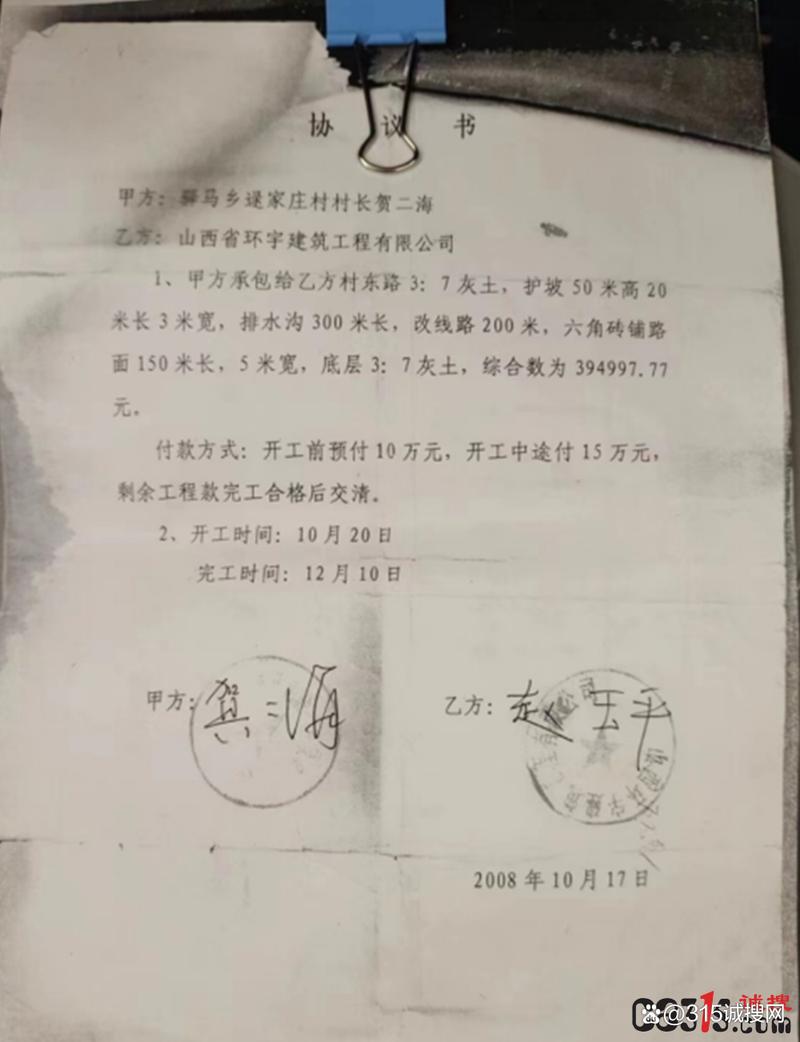 协议书
甲方：驿马乡逯家庄村村长贺二海
乙方：山西省环宇建筑工程有限公司
1、甲方承包给乙方村东路3：7灰土，护坡50米高20
米长3米宽，排水沟300米长，改线路200米，六角砖铺路
面150米长，5米宽，底层3：7灰土，综合数为394997.77
元。
付款方式：开工前预付10万元，开工中途付15万元，
剩余工程款完工合格后交清。
2、开工时间：10月20日
完工时间：12月10日
甲方：贺二海
乙方：赵玉平
2008年10月17日
@315诚搜网
诚搜
CC315.com